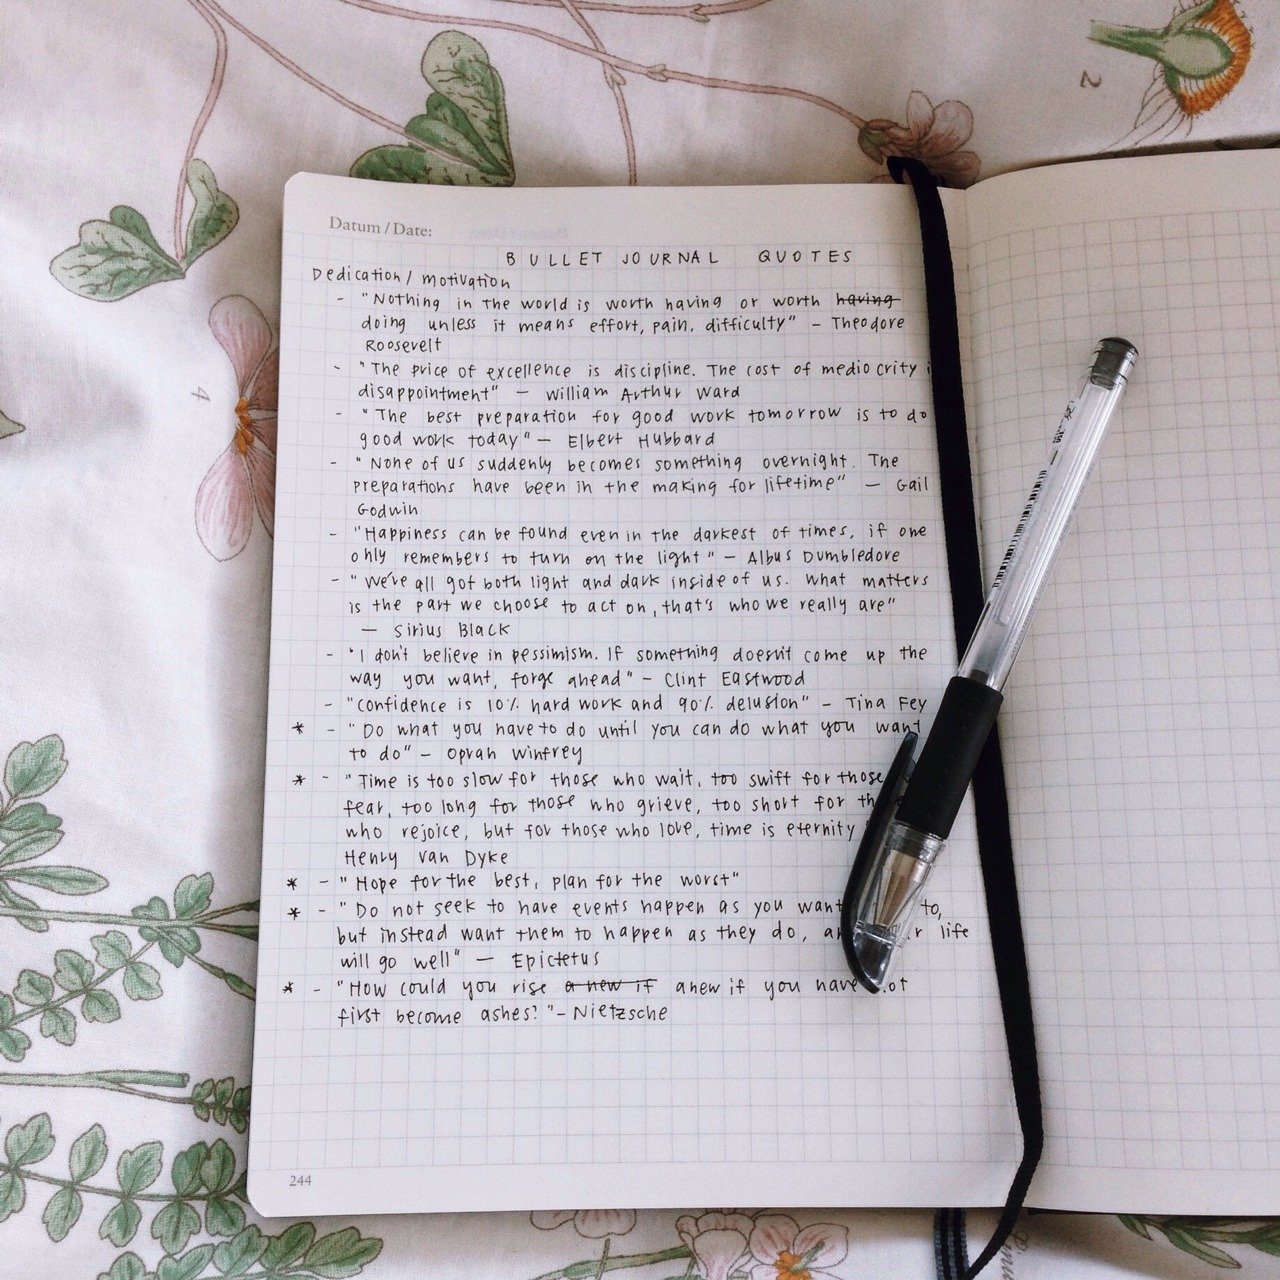 Datum / Date:
BULLET JOURNAL QUOTES
Dedication / motivation
- "Nothing in the world is worth having or worth having
doing unless it means effort, pain, difficulty" - Theodore
Roosevelt
- "The price of excellence is discipline. The cost of mediocrity
disappointment" - William Arthur Ward
- "The best preparation for good work tomorrow is to do
good work today" - Elbert Hubbard
- "None of us suddenly becomes something overnight. The
preparations have been in the making for lifetime" - Gail
Godwin
- "Happiness can be found even in the darkest of times, if one
only remembers to turn on the light" - Albus Dumbledore
- "We've all got both light and dark inside of us. What matters
is the part we choose to act on, that's who we really are"
- Sirius Black
- "I don't believe in pessimism. If something doesn't come up the
way you want, forge ahead" - Clint Eastwood
- "Confidence is 10% hard work and 90% delusion" - Tina Fey
* - "Do what you have to do until you can do what you want
to do" - Oprah Winfrey
* - "Time is too slow for those who wait, too swift for those
fear, too long for those who grieve, too short for
who rejoice, but for those who love, time is eternity
Henry Van Dyke
* - "Hope for the best, plan for the worst"
* - "Do not seek to have events happen as you want to,
but instead want them to happen as they do, life
will go well" - Epictetus
* - "How could you rise a new if anew if you have
first become ashes?" - Nietzsche
244
2
4